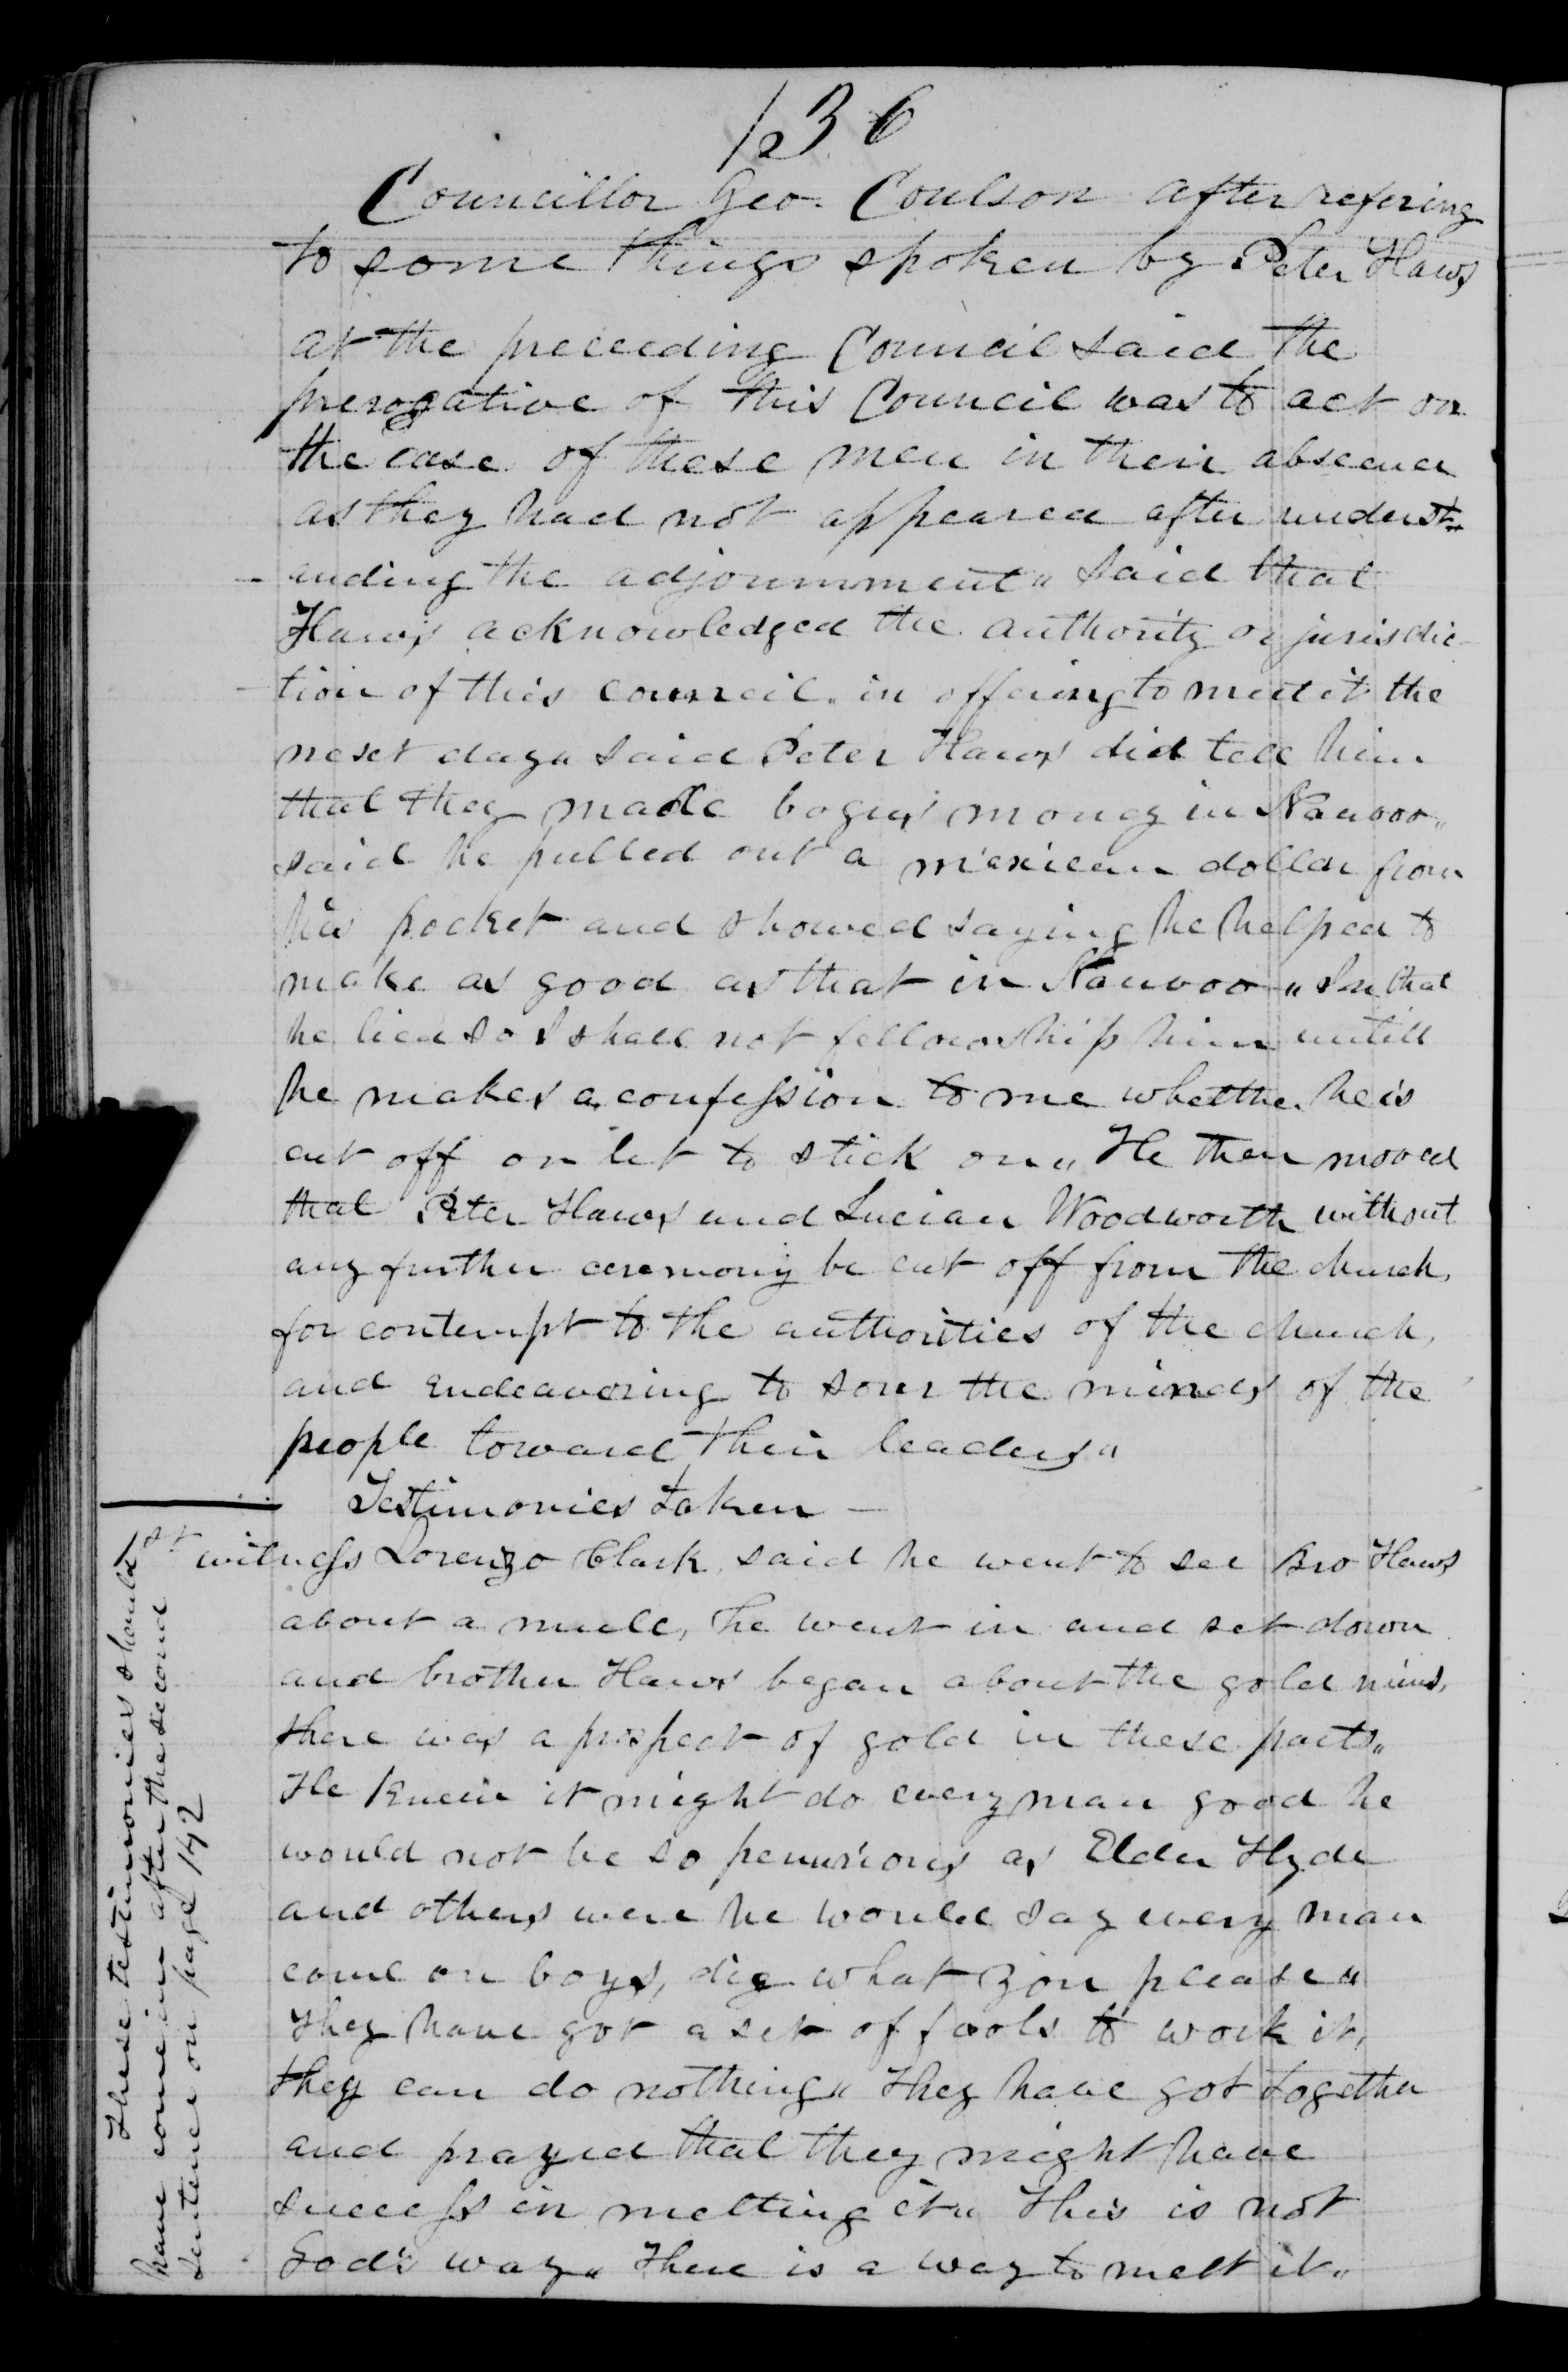 136
Councillor Geo. Coulson after refering
to some things spoken by Peter Haws
at the preceeding Council said the
prerogative of this Council was to act on
the case of these men in their absence
as they had not appeared after underst-
-anding the adjournment" said that
Haws acknowledged the authority or jurisdic-
-tion of this council. in offering to meet it the
next day" said Peter Haws did tell him
that they made bogus money in Nauvoo"
said he pulled out a mexican dollar from
his pocket and showed saying he helped to
make as good as that in Nauvoo" In that
he lied so I shall not fellowship him untill
he makes a confession to me whether he is
cut off or let to stick on" He then mooved
that Peter Haws and Lucian Woodworth without
any further ceremony be cut off from the church,
for contempt to the authorities of the church,
and endeavoring to sour the minds of the
people toward their leaders"
Testimonies taken —
1st witness Lorenzo Clark, said he went to see Bro Haws
about a mule, he went in and set down
and brother Haws began about the gold mines,
there was a prospect of gold in these parts"
He knew it might do every man good he
would not be so penurious as Elder Hyde
and others were he would say every man
come on boys, dig what you please"
They have got a set of fools to work it,
they can do nothing" They have got together
and prayed that they might have
success in melting it" This is not
God's way" There is a way to melt it"
These testimonies should
have come in after the second
sentence on page 142